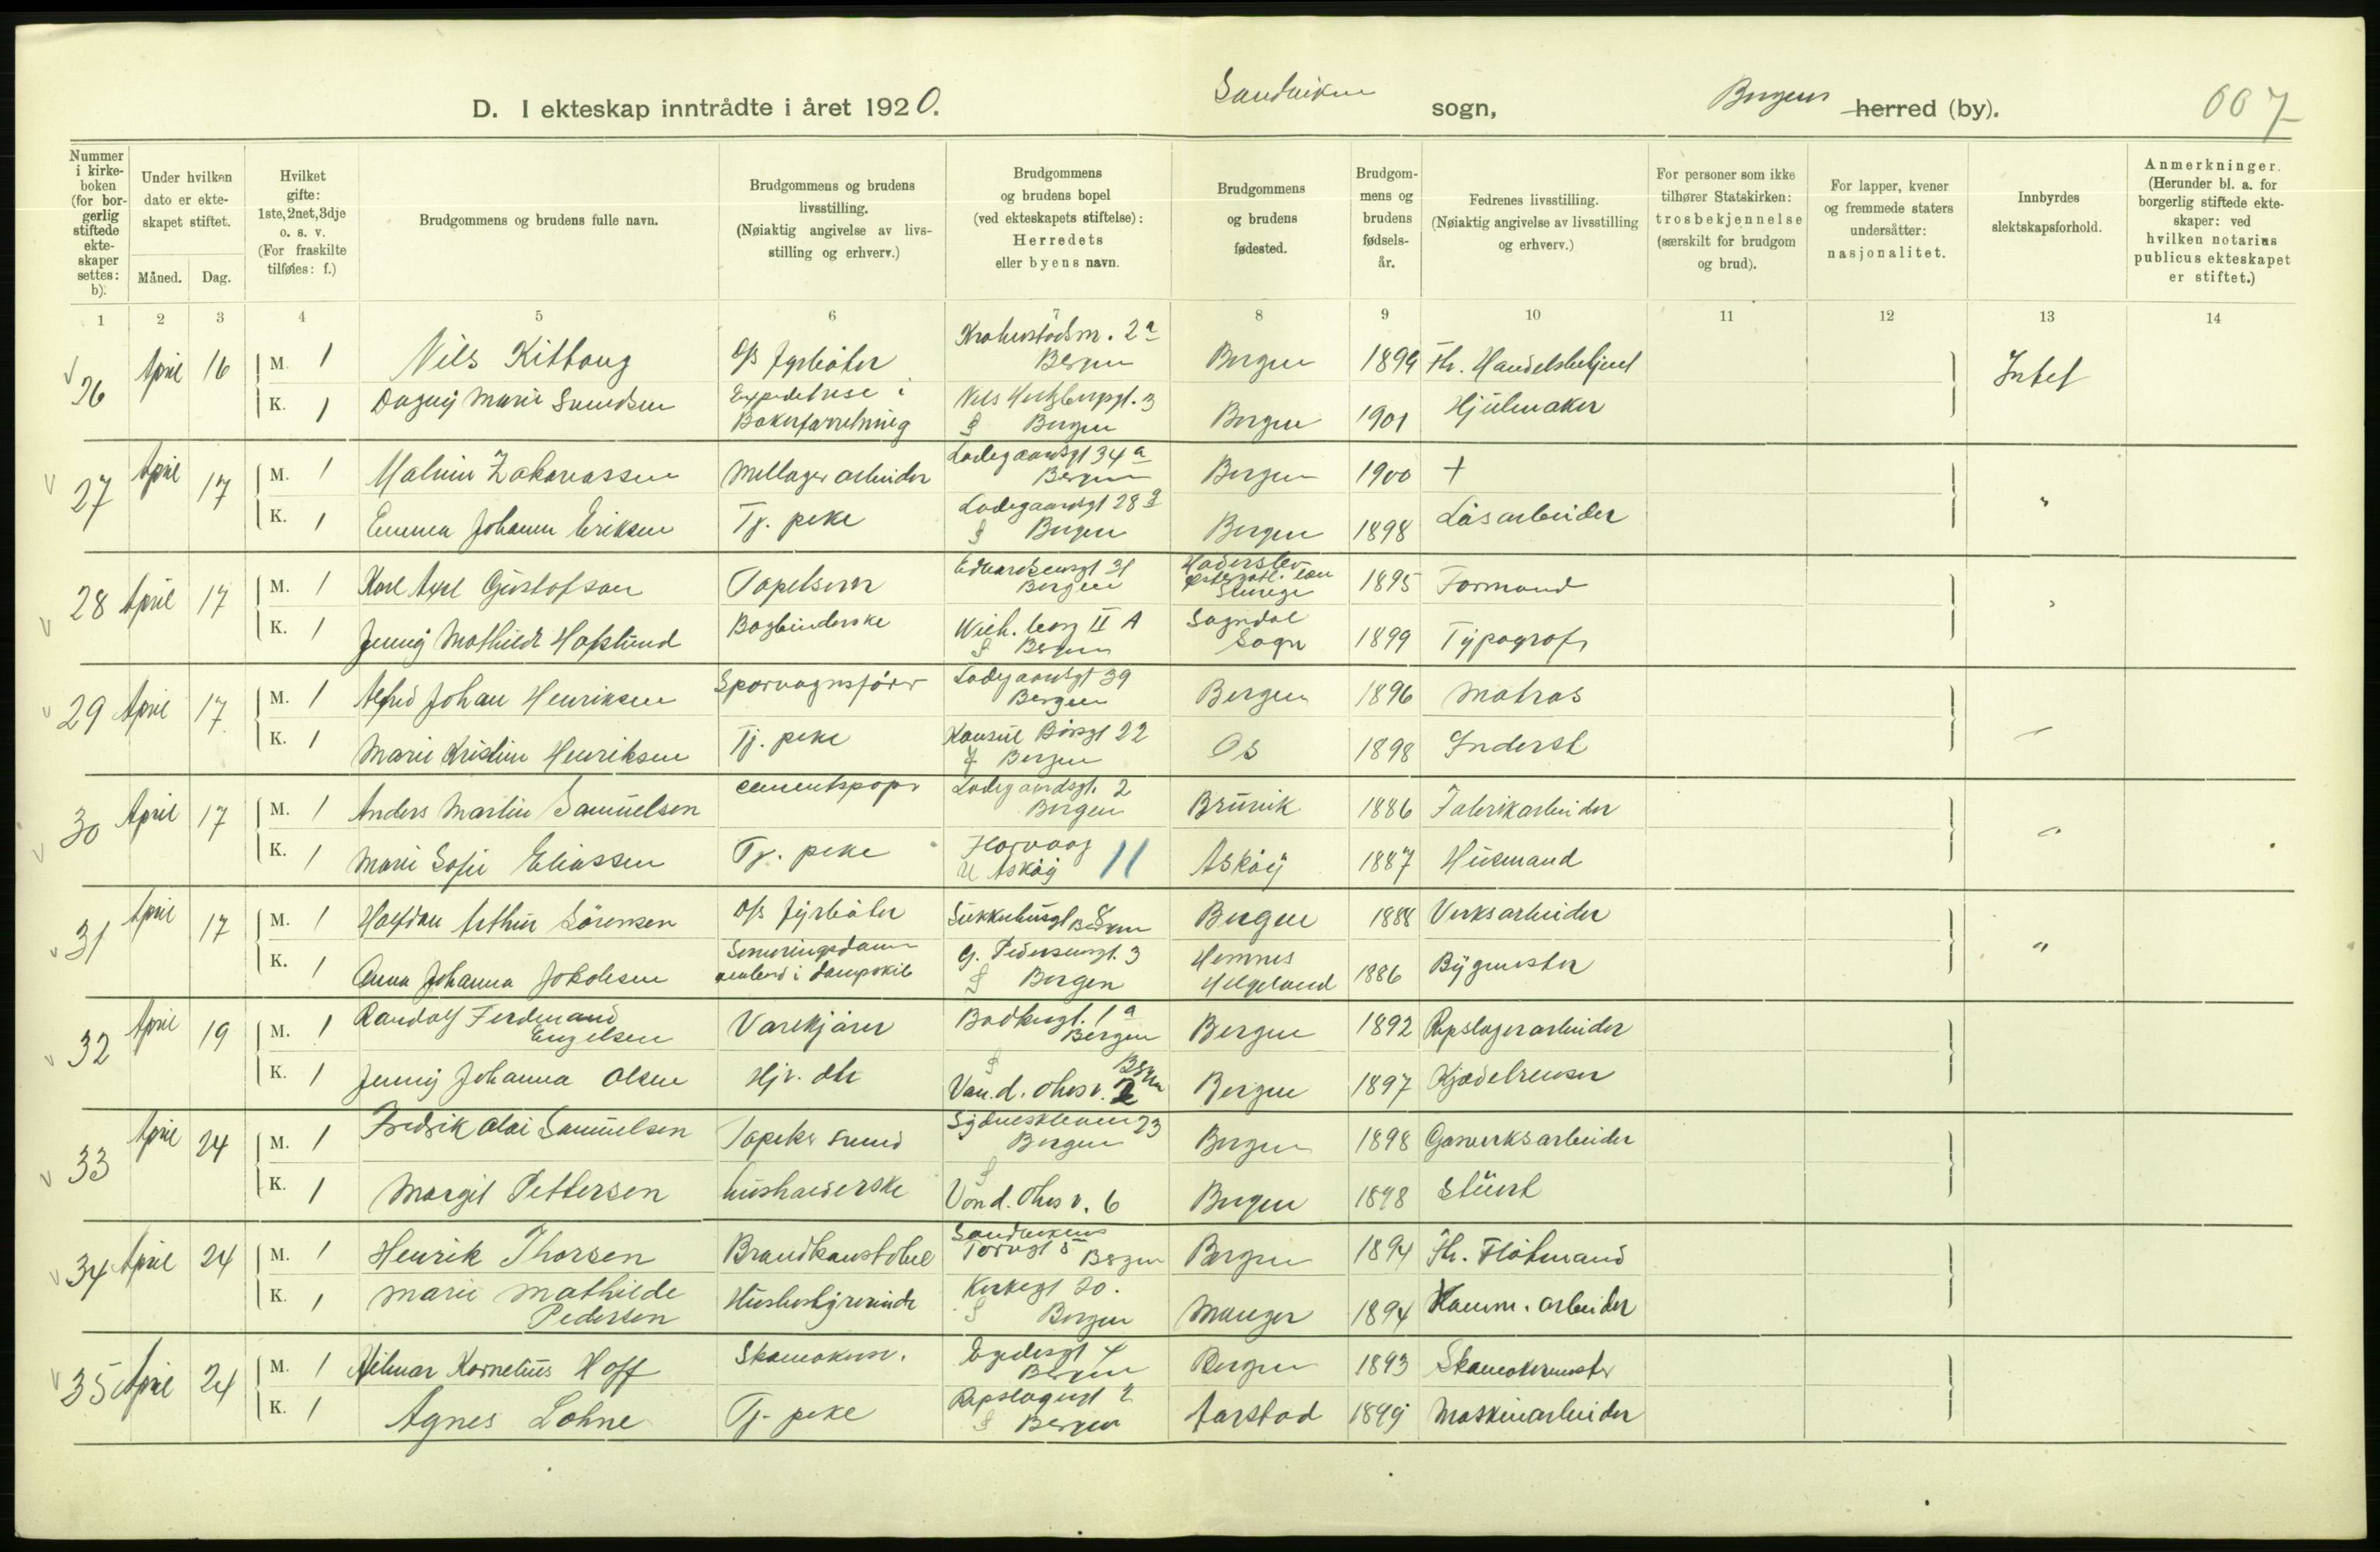 D. I ekteskap inntrådte i året 1920. Sandviken sogn, Bergens herred (by). 007
Nummer i kirkeboken (for borgerlig stiftede ekteskaper settes: b).
Under hvilken dato er ekteskapet stiftet.
Måned. Dag.
Hvilket gifte: 1ste, 2net, 3dje o. s. v. (For fraskilte tilføies: f.)
Brudgommens og brudens fulle navn.
Brudgommens og brudens livsstilling. (Nøiaktig angivelse av livsstilling og erhverv.)
Brudgommens og brudens bopel (ved ekteskapets stiftelse): Herredets eller byens navn.
Brudgommens og brudens fødested.
Brudgommens og brudens fødselsår.
Fedrenes livsstilling. (Nøiaktig angivelse av livsstilling og erhverv.)
For personer som ikke tilhører Statskirken: trosbekjennelse (særskilt for brudgom og brud).
For lapper, kvener og fremmede staters undersåtter: nasjonalitet.
Innbyrdes slektskapsforhold.
Anmerkninger. (Herunder bl. a. for borgerlig stiftede ekteskaper: ved hvilken notarius publicus ekteskapet er stiftet.)
1 2 3 4 5 6 7 8 9 10 11 12 13 14
26 April 16 M. 1 Nils Kittang D/s fyrbøter Bergen Bergen 1899 Fh. Handelsbetjent Intet
K. 1 Dagny Marie Svendsen Expeditrise i Bakerforretning Nils Hertzbergsgt. 3 Bergen Bergen 1901 Hjulmaker
27 April 17 M. 1 Malvin Zakariassen Mellager arbeider Ladegaardsgt 34 a Bergen Bergen 1900 +
K. 1 Emma Johanne Eriksen Tj. pike Ladegaardsgt 28 Bergen Bergen 1898 Løsarbeider "
28 April 17 M. 1 Karl Axel Gustofson Tapetserer Edvardsensgt 31 Bergen 1895 Formand
K. 1 Jenny Mathilde Hafslund Bogbinderske II A Bergen Sogndal Sogn 1899 Typograf "
29 April 17 M. 1 Alfred Johan Henriksen Sporvagnsfører Ladegaardsgt 39 Bergen Bergen 1896 Matros
K. 1 Marie Kristine Henriksen Tj. pike Konsul Børsgt 22 Bergen Os 1898 Inderst "
30 April 17 M. 1 Anders Martin Samuelsen Ladegaardsgt. 2 Bergen Bruvik 1886 Fabrikarbeider
K. 1 Marie Sofie Eliassen Tj. pike Askøy 11 Askøy 1887 Husmand "
31 April 17 M. 1 Halfdan Arthur Sörensen D/s fyrbøter Bergen Bergen 1888 Verksarbeider
K. 1 Anna Johanna Jakobsen G. Pedersensgt. 3 Bergen Hemnes Helgeland 1886 Bygmester "
32 April 19 M. 1 Randolf Ferdinand Engelsen Varekjører 1 a Bergen Bergen 1892 Repslagerarbeider
K. 1 Jenny Johanna Olsen Hjv. dtr Bergen Bergen 1897 Kjedelrenser
33 April 24 M. 1 Fredrik Olai Samuelsen Tapetsersvend Sydneskleven 23 Bergen Bergen 1898 Gasverksarbeider
K. 1 Margit Pettersen husholderske 6 Bergen 1898 Stuert
34 April 24 M. 1 Henrik Thorsen Brandkonstabel Sandvikens Torvgt 5 Bergen Bergen 1894 Fh. Flötmand
K. 1 Marie Mathilde Pedersen Husbestyrerinde Kirkegt 20. Bergen Manger 1894 Komm. arbeider
35 April 24 M. 1 Hilmar Kornelius Hoff Skomakersv. Egedesgt 4 Bergen Bergen 1893 Skomakermester
K. 1 Agnes Lohne Tj. pike Repslagergt 2 Bergen Aarstad 1899 Maskinarbeider